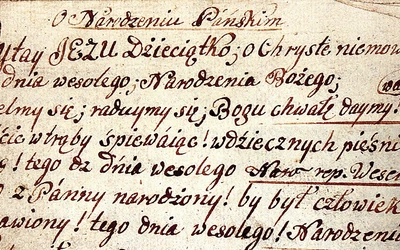 O Narodzeniu Pańskim
ytay JEZU Dzieciątko; o Chryste niemow
dnia wesołego; Narodzenia Bożego;
elmy się; raduymy się; Bogu chwałę daymy!
ćie wtrąby śpiewaiąc! wdziecznych pieśni
ę! tego dz dnia wesołego Naro rep. Wesel
o z Panny narodzony! by był człowiek
awiony! tego dnia wesołego! Narodzenia